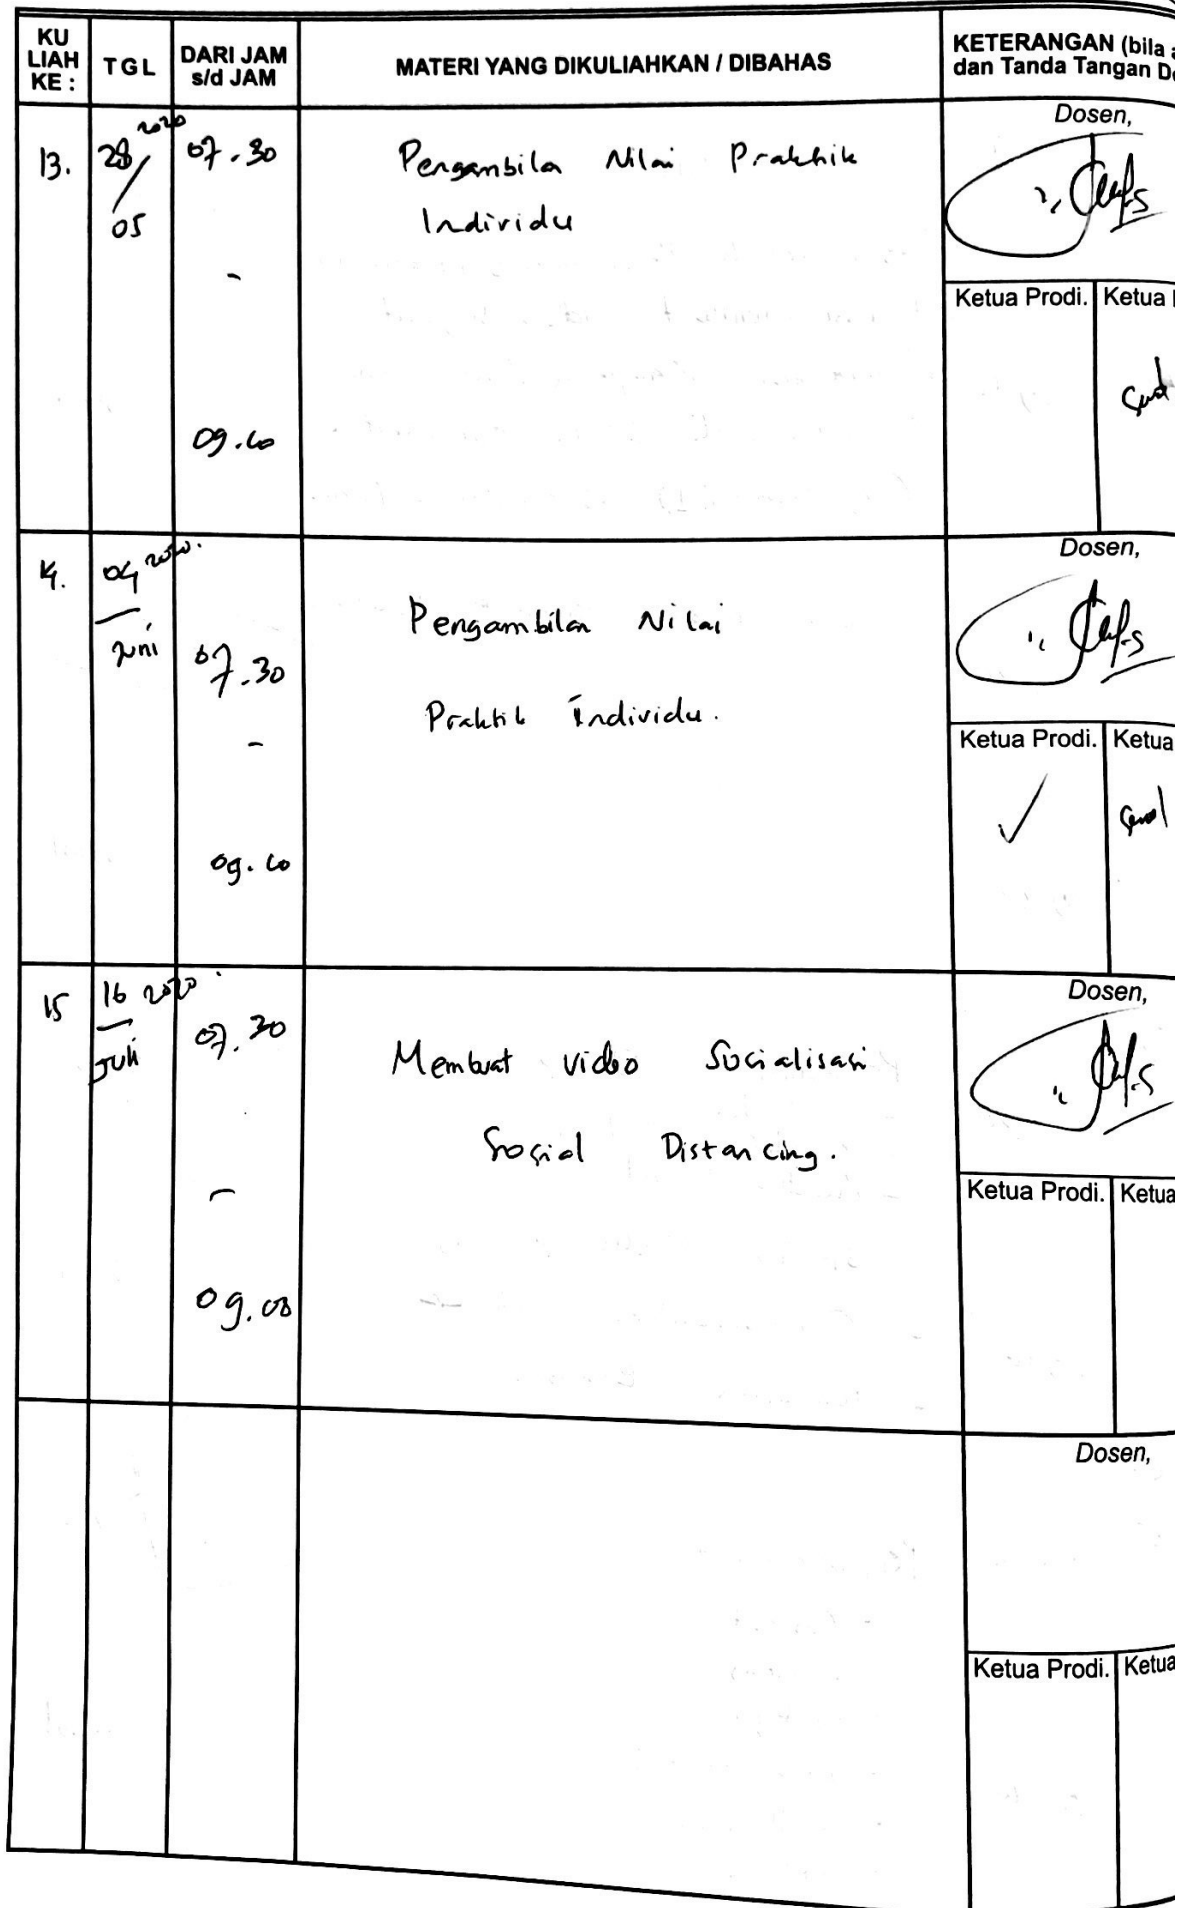 KU
LIAH
KE :
TGL
DARI JAM
s/d JAM
MATERI YANG DIKULIAHKAN / DIBAHAS
KETERANGAN (bila
dan Tanda Tangan
13.
28/05
2020
07.30
-
Pengambilan Nilai Praktik
Individu
Dosen,
Ketua Prodi.
Ketua
14.
04 2020.
Juni
07.30
-
Pengambilan Nilai
Praktik Individu.
Dosen,
Ketua Prodi.
Ketua
15
16 2020
Juli
07.30
-
09.00
Membuat video Socialisasi
Sosial Distancing.
Dosen,
Ketua Prodi.
Ketua
Dosen,
Ketua Prodi.
Ketua